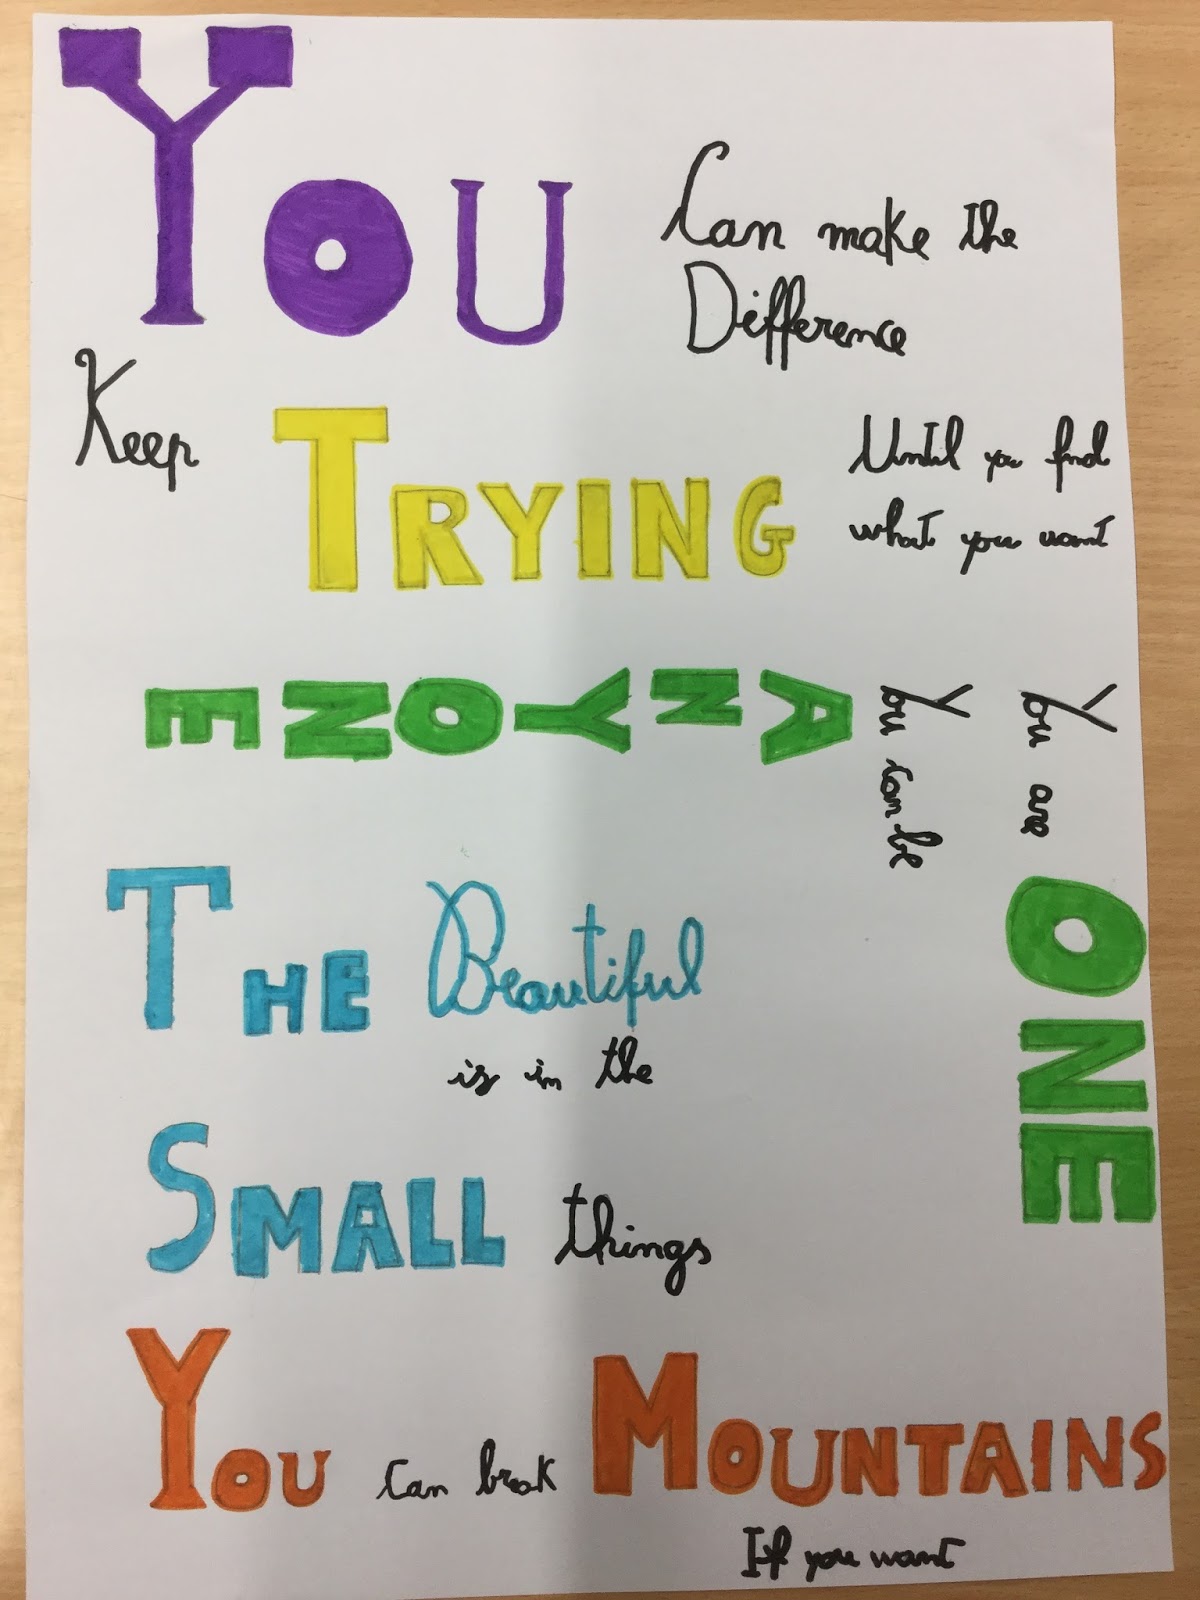 YOU Can make the
Difference
Keep TRYING Until you find
what you want
You are ONE
You can be
ANYONE
THE Beautiful
is in the
SMALL things
YOU Can break MOUNTAINS
If you want